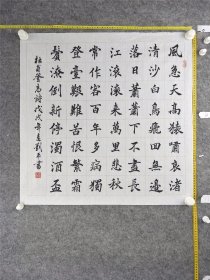 風急天高猿嘯哀渚
清沙白鳥飛迴無邊
落木蕭蕭下不盡長
江滾滾來萬里悲秋
常作客百年多病獨
登臺艱難苦恨繁霜
鬢潦倒新停濁酒盃
杜甫登高詩戊戌年夏劉書